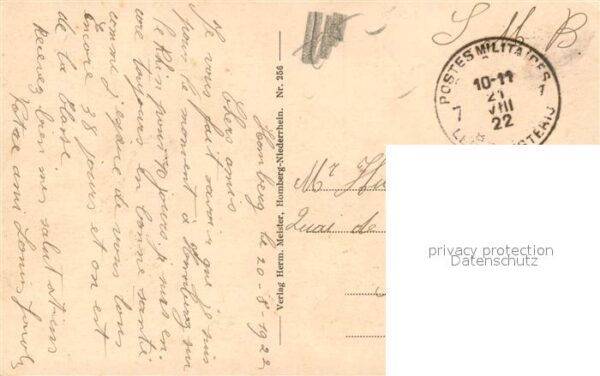 Homberg le 20-8-1922
Chers amis
Je vous fait savoir que je suis
pour le moment à Homberg sur
le Rhin pour 10 jours, je suis en-
core toujours en bonne santé
comme j'espère de vous tous
Encore 38 jours et on est
de la classe.
Recevez bien mes salutations
Votre ami Louis
Verlag Herm. Meister, Homberg-Niederrhein. Nr. 256
S M B
POSTES MILITAIRES 1
10-11
21
VIII
22
7
Mr
Quai de
privacy protection
Datenschutz